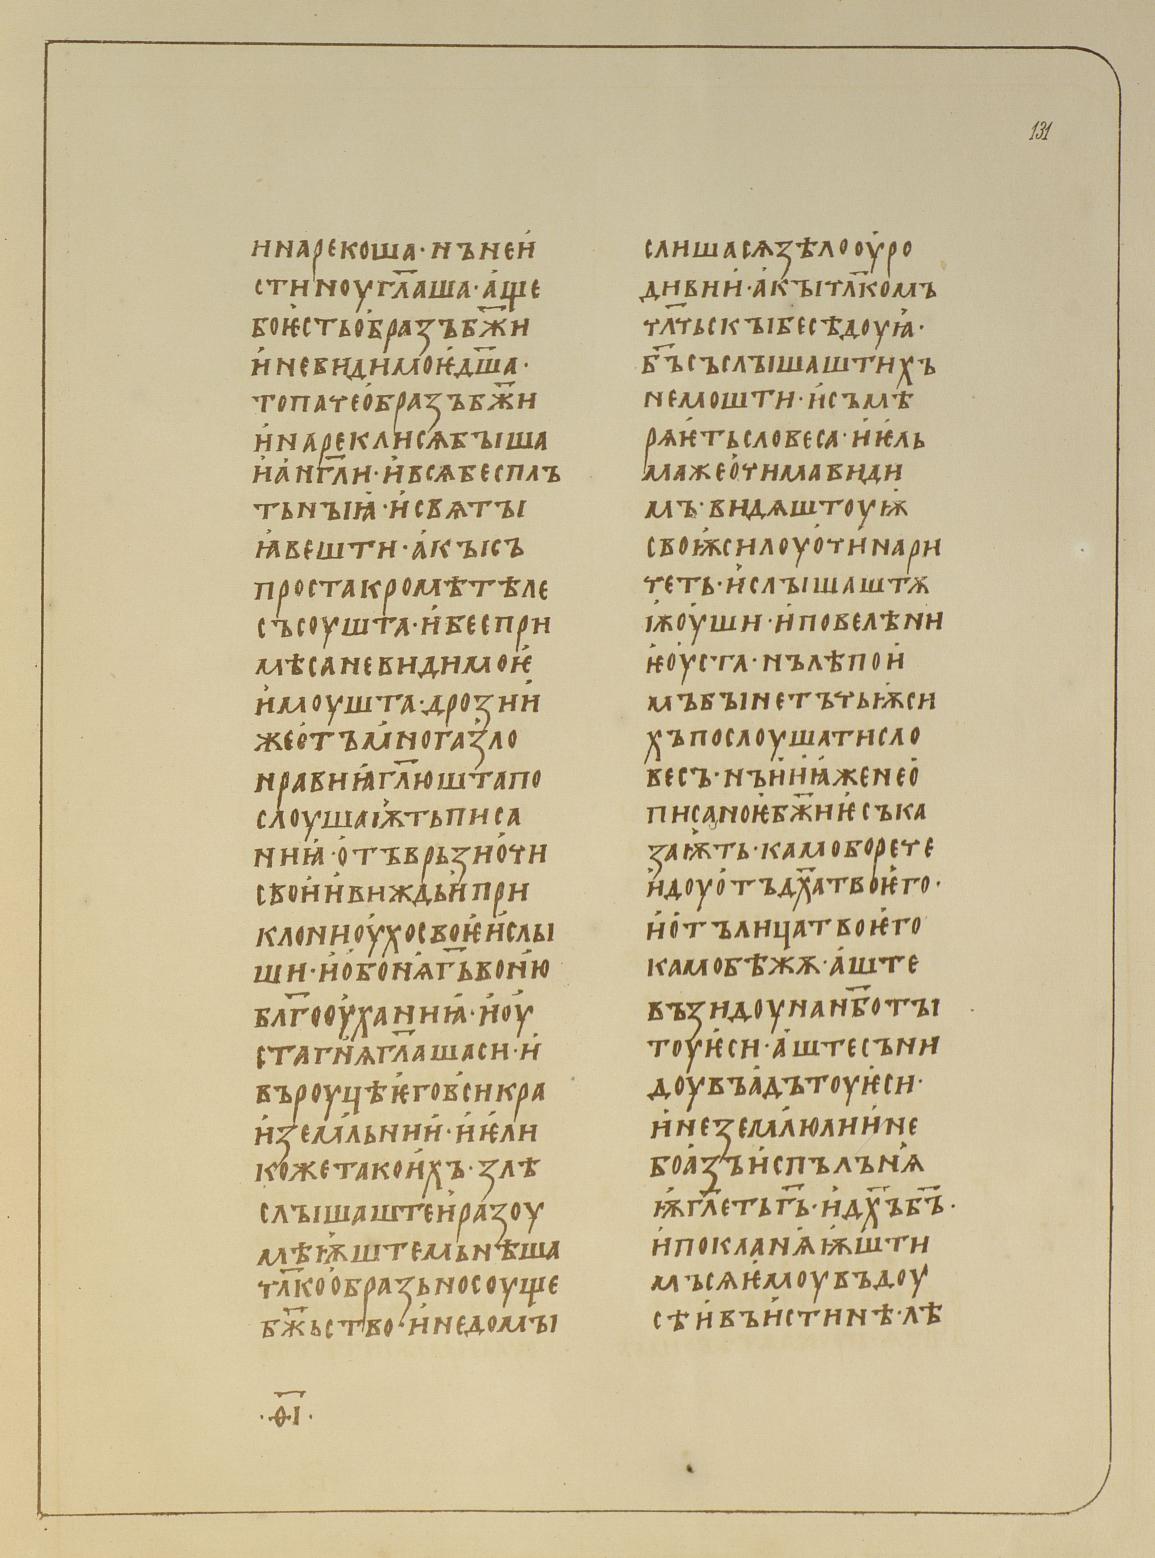 131
ꙇнарекоша· нъ неи҆
стиноу гл҃аша· а҆ще
бо ѥ҆сть о҆бразъ бж҃и
и҆ невидимоѥ҆ дш҃а·
то паче о҆бразъ бж҃и
и҆ нарекли сѧ быша
и҆ а҆нг҃ли· и҆ всѧ беспль
тьныꙗ҆· и҆ свѧты
ꙗ҆ вешти· а҆кы съ
проста кромѣ тѣле
съ соушта· и҆ бес при
мѣса невидимоѥ҆
и҆моушта· дрозии҆
же о҆тъ многа зло
нравиꙗ҆ гл҃юшта по
слоушаѭ҆ть писа
ниꙗ҆· о҆тъврьзи о҆чи
свои҆ и҆ виждь и҆ при
клони оу҆хо своѥ҆ и҆ слы
ши· и҆ о҆бонѧ г҃ь воню҆
бл҃гооу҆ханиꙗ҆· и҆ оу҆
ста г҃нѧ гл҃аша си· и҆
въ роуцѣ ѥ҆го вси кра
и҆ земльнии҆· и҆ ѥ҆ли
коже тако и҆хъ· злѣ
слышаште и҆ разоу
мѣѭ҆ште мьнѣша
чл҃кообразьно соуще
бж҃ьство· и҆ недомы
·ѳ҃і·
слиша сѧ зѣло оу҆ро
дивии҆· а҆кы чл҃комъ
чл҃чьскы бесѣдоуꙗ҆·
б҃ъ съ слышаштихъ
немошти· и҆ съмѣ
рѧѥ҆ть словеса· и҆ ѥ҆ль
ма же о҆чима види
мъ· видѧштоуѭ҆
своѭ҆ силоу о҆чи нари
четь· и҆ слышаштѫ
ѭ҆ оу҆ши· и҆ повелѣни
ѥ҆ оу҆ста· нъ лѣпо и҆
мъ бы не тъчьѭ҆ си
хъ послоушати сло
весъ· нъ и҆ и҆на ꙗ҆же нео҆
писаноѥ҆ бж҃иѥ҆ съка
заѭ҆ть· камо бо рече
и҆доу о҆тъ дх҃а твоѥ҆го·
и҆ о҆тъ лица твоѥ҆го
камо бѣжѫ· а҆ште
възидоу на нб҃о ты
тоу ѥ҆си· а҆ште съни
доу въ а҆дъ тоу ѥ҆си·
и҆ не землю ли и҆ не
бо а҆зъ и҆спълънѧ
ѭ҆ гл҃еть г҃ь· и҆ дх҃ъ б҃ъ·
и҆ покланѧѭ҆шти
мъ сѧ ѥ҆моу въ доу
сѣ и҆ въ и҆стинѣ· лѣ